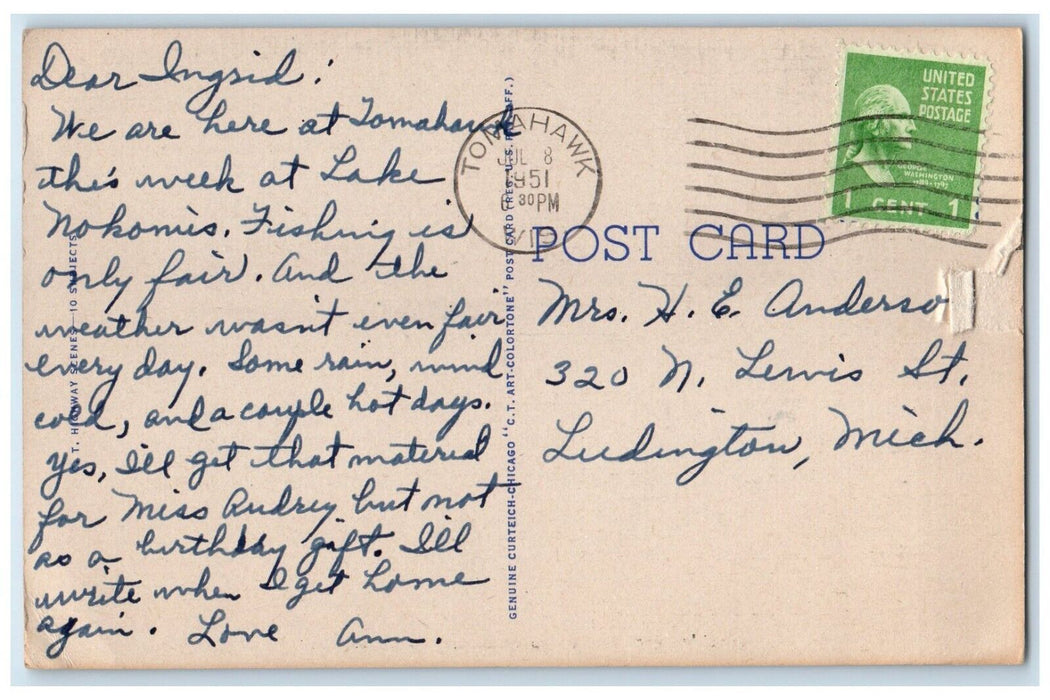 Dear Ingrid:
We are here at Tomahawk
this week at Lake
Nokomis. Fishing is
only fair. And the
weather wasn't even fair
every day. Some rain, wind
cold, and a couple hot days.
Yes, I'll get that material
for Miss Audrey but not
as a birthday gift. I'll
write when I get home
again. Love Ann.
T. HIGHWAY SCENES—10 SUBJECTS
GENUINE CURTEICH-CHICAGO "C.T. ART-COLORTONE" POST CARD (REG. U.S. PAT. OFF.)
TOMAHAWK
JUL 8
1951
6 30 PM
WIS
UNITED
STATES
POSTAGE
GEORGE
WASHINGTON
1789-1797
1 CENT 1
POST CARD
Mrs. H. E. Anderso
320 N. Lewis St.
Ludington, Mich.